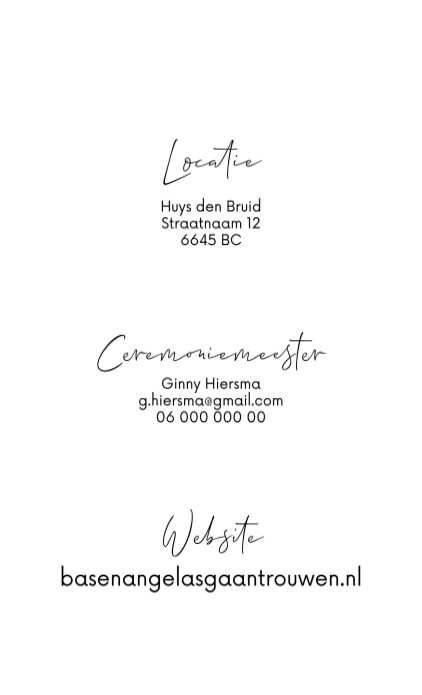 Locatie
Huys den Bruid
Straatnaam 12
6645 BC
Ceremoniemeester
Ginny Hiersma
g.hiersma@gmail.com
06 000 000 00
Website
basenangelasgaantrouwen.nl